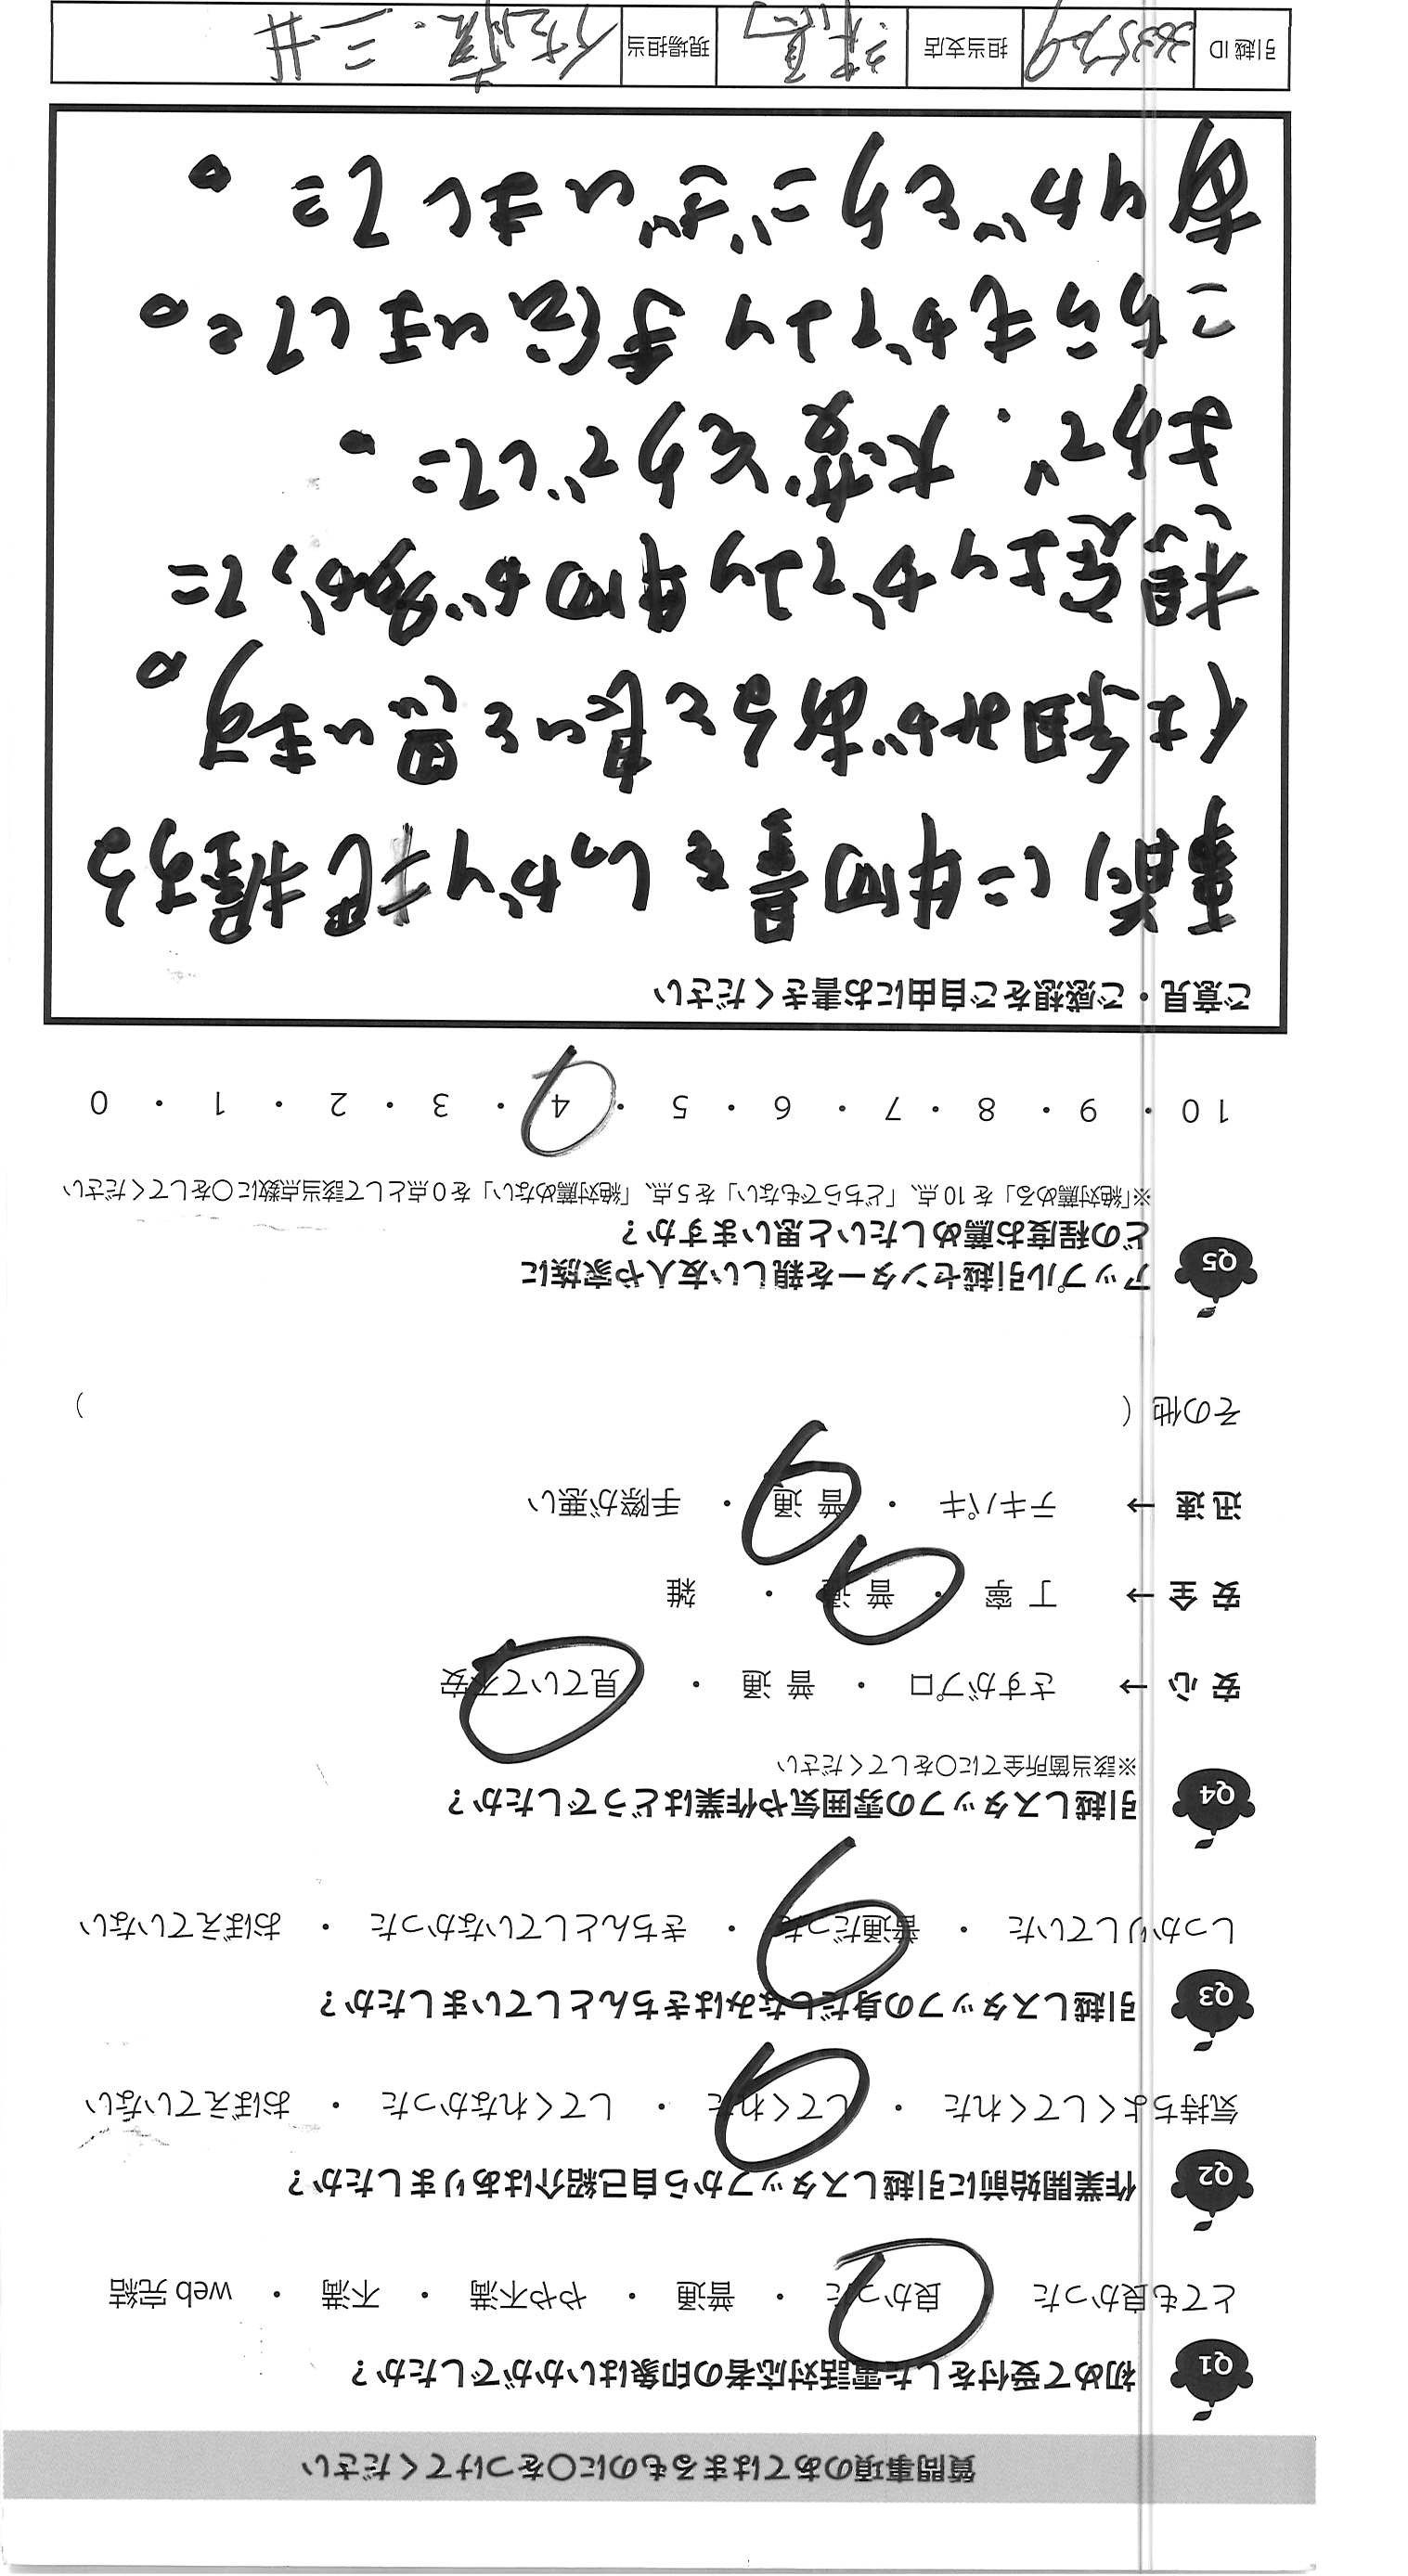 質問事項のあてはまるものに○をつけてください
Q1 初めて受付をした電話対応者の印象はいかがでしたか？
とても良かった ・ 良かった ・ 普通 ・ やや不満 ・ 不満 ・ web 完結
Q2 作業開始前に引越しスタッフから自己紹介はありましたか？
気持ちよくしてくれた ・ してくれた ・ してくれなかった ・ おぼえていない
Q3 引越しスタッフの身だしなみはきちんとしていましたか？
しっかりしていた ・ 普通だった ・ きちんとしていなかった ・ おぼえていない
Q4 引越しスタッフの雰囲気や作業はどうでしたか？
※該当箇所全てに○をしてください
安 心 → さすがプロ ・ 普 通 ・ 見ていて不安
安 全 → 丁 寧 ・ 普 通 ・ 雑
迅 速 → テキパキ ・ 普 通 ・ 手際が悪い
その他（ ）
Q5 アップル引越センターを親しい友人や家族に
どの程度お薦めしたいと思いますか？
※「絶対薦める」を 10 点、「どちらでもない」を 5 点、「絶対薦めない」を 0 点として該当点数に○をしてください
10 ・ 9 ・ 8 ・ 7 ・ 6 ・ 5 ・ 4 ・ 3 ・ 2 ・ 1 ・ 0
ご意見・ご感想をご自由にお書きください
事前に荷物量をしっかり把握する
仕組みがあると良いと思います。
想定よりかなり荷物が多かった
ようで、大変そうでした。
こちらもかなり手伝いました。
ありがとうございました。
引越 ID 担当支店 現場担当 三井